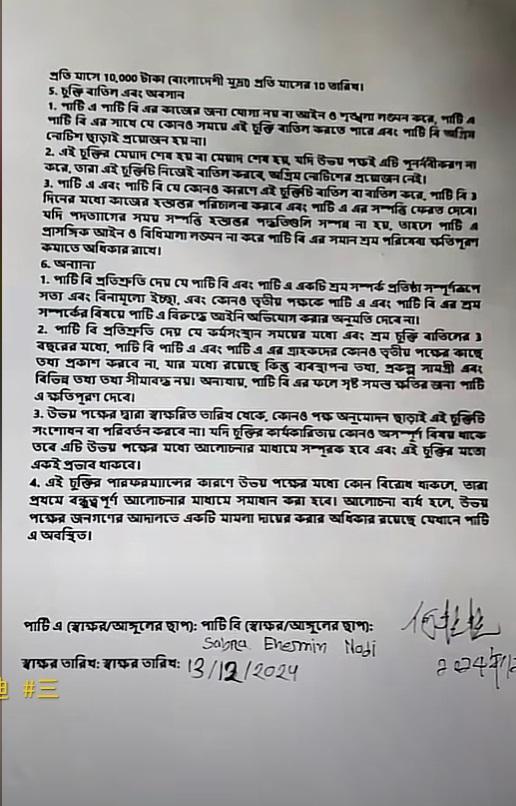 প্রতি মাসে 10,000 টাকা (বাংলাদেশী মুদ্রা) প্রতি মাসের 10 তারিখ।
5. চুক্তি বাতিল এবং অবসান
1. পার্টি এ পার্টি বি এর কাজের জন্য যোগ্য নয় বা আইন ও শৃঙ্খলা লঙ্ঘন করে, পার্টি এ
পার্টি বি এর সাথে যে কোনও সময়ে এই চুক্তি বাতিল করতে পারে এবং পার্টি বি অগ্রিম
নোটিশ ছাড়াই প্রয়োজন হয় না।
2. এই চুক্তির মেয়াদ শেষ হয় বা মেয়াদ শেষ হয়, যদি উভয় পক্ষই এটি পুনর্নবীকরণ না
করে, তারা এই চুক্তিটি নিজেই বাতিল করবে, অগ্রিম নোটিশের প্রয়োজন নেই।
3. পার্টি এ এবং পার্টি বি যে কোনও কারণে এই চুক্তিটি বাতিল বা বাতিল করে, পার্টি বি 3
দিনের মধ্যে কাজের হস্তান্তর পরিচালনা করবে এবং পার্টি এ এর সম্পত্তি ফেরত দেবে।
যদি পদত্যাগের সময় সম্পত্তি হস্তান্তর পদ্ধতিগুলি সম্পন্ন না হয়, তাহলে পার্টি এ
প্রাসঙ্গিক আইন ও বিধিমালা লঙ্ঘন না করে পার্টি বি এর সমান শ্রম পরিষেবা ক্ষতিপূরণ
কমাতে অধিকার রাখে।
6. অন্যান্য
1. পার্টি বি প্রতিশ্রুতি দেয় যে পার্টি বি এবং পার্টি এ একটি শ্রম সম্পর্ক প্রতিষ্ঠা সম্পূর্ণরূপে
সত্য এবং বিনামূল্যে ইচ্ছা, এবং কোনও তৃতীয় পক্ষকে পার্টি এ এবং পার্টি বি এর শ্রম
সম্পর্কের বিষয়ে পার্টি এ বিরুদ্ধে আইনি অভিযোগ করার অনুমতি দেবে না।
2. পার্টি বি প্রতিশ্রুতি দেয় যে কর্মসংস্থান সময়ের মধ্যে এবং শ্রম চুক্তি বাতিলের 3
বছরের মধ্যে, পার্টি বি পার্টি এ এবং পার্টি এ এর গ্রাহকদের কোনও তৃতীয় পক্ষের কাছে
তথ্য প্রকাশ করবে না, যার মধ্যে রয়েছে কিন্তু ব্যবস্থাপনা তথ্য, প্রকল্প সামগ্রী এবং
বিভিন্ন তথ্য তথ্য সীমাবদ্ধ নয়। অন্যথায়, পার্টি বি এর ফলে সৃষ্ট সমস্ত ক্ষতির জন্য পার্টি
এ ক্ষতিপূরণ দেবে।
3. উভয় পক্ষের দ্বারা স্বাক্ষরিত তারিখ থেকে, কোনও পক্ষ অনুমোদন ছাড়াই এই চুক্তিটি
সংশোধন বা পরিবর্তন করবে না। যদি চুক্তির কার্যকারিতায় কোনও অসম্পূর্ণ বিষয় থাকে
তবে এটি উভয় পক্ষের মধ্যে আলোচনার মাধ্যমে সম্পূরক হবে এবং এই চুক্তির মতো
একই প্রভাব থাকবে।
4. এই চুক্তির পারফরম্যান্সের কারণে উভয় পক্ষের মধ্যে কোন বিরোধ থাকলে, তারা
প্রথমে বন্ধুত্বপূর্ণ আলোচনার মাধ্যমে সমাধান করা হবে। আলোচনা ব্যর্থ হলে, উভয়
পক্ষের জনগণের আদালতে একটি মামলা দায়ের করার অধিকার রয়েছে যেখানে পার্টি
এ অবস্থিত।
পার্টি এ (স্বাক্ষর/আঙ্গুলের ছাপ): পার্টি বি (স্বাক্ষর/আঙ্গুলের ছাপ):
Sabna Ehesmin Nodi
স্বাক্ষর তারিখ: স্বাক্ষর তারিখ: 13/12/2024
#三